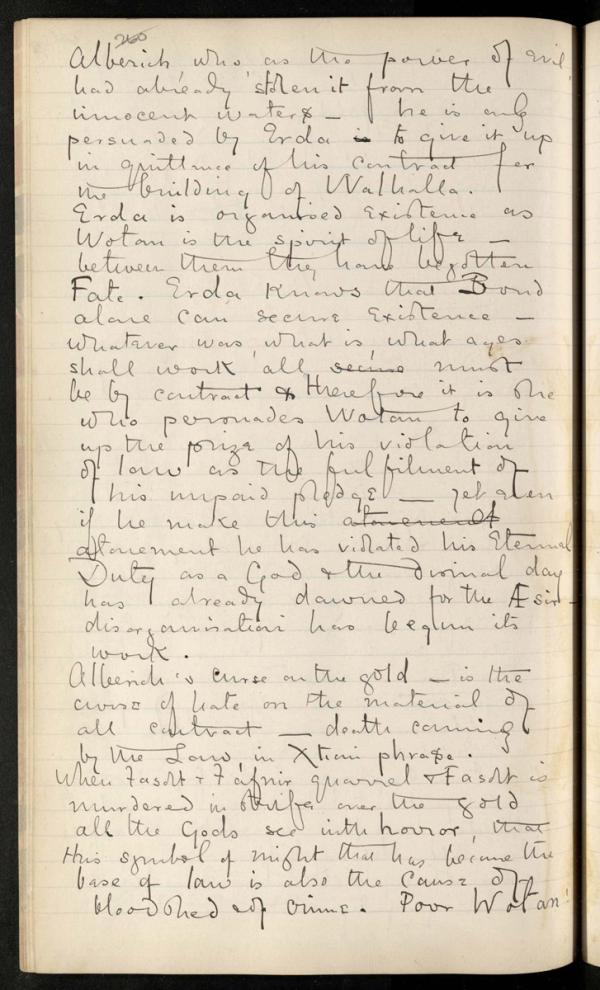 260
Alberich who as the power of evil
had already stolen it from the
innocent waters — he is only
persuaded by Erda is to give it up
in quittance of his contract for
the building of Walhalla.
Erda is organised existence as
Wotan is the spirit of life —
between them they have begotten
Fate. Erda knows that Bond
alone can secure Existence —
whatever was, what is, what ages
shall work all, secure must
be by contract & therefore it is she
who persuades Wotan to give
up the prize of his violation
of law as the fulfilment of
his unpaid pledge — yet even
if he make this atonement
atonement he has violated his Eternal
Duty as a God & the final day
has already dawned for the Æsir —
disorganisation has begun its
work.
Alberich's curse on the gold — is the
curse of hate on the material of
all contract — death coming
by the Law, in Xtian phrase.
When Fasolt & Fafnir quarrel & Fasolt is
murdered in strife over the gold
all the Gods see with horror, that
this symbol of might that has become the
base of law is also the cause of
bloodshed & of crime. Poor Wotan!